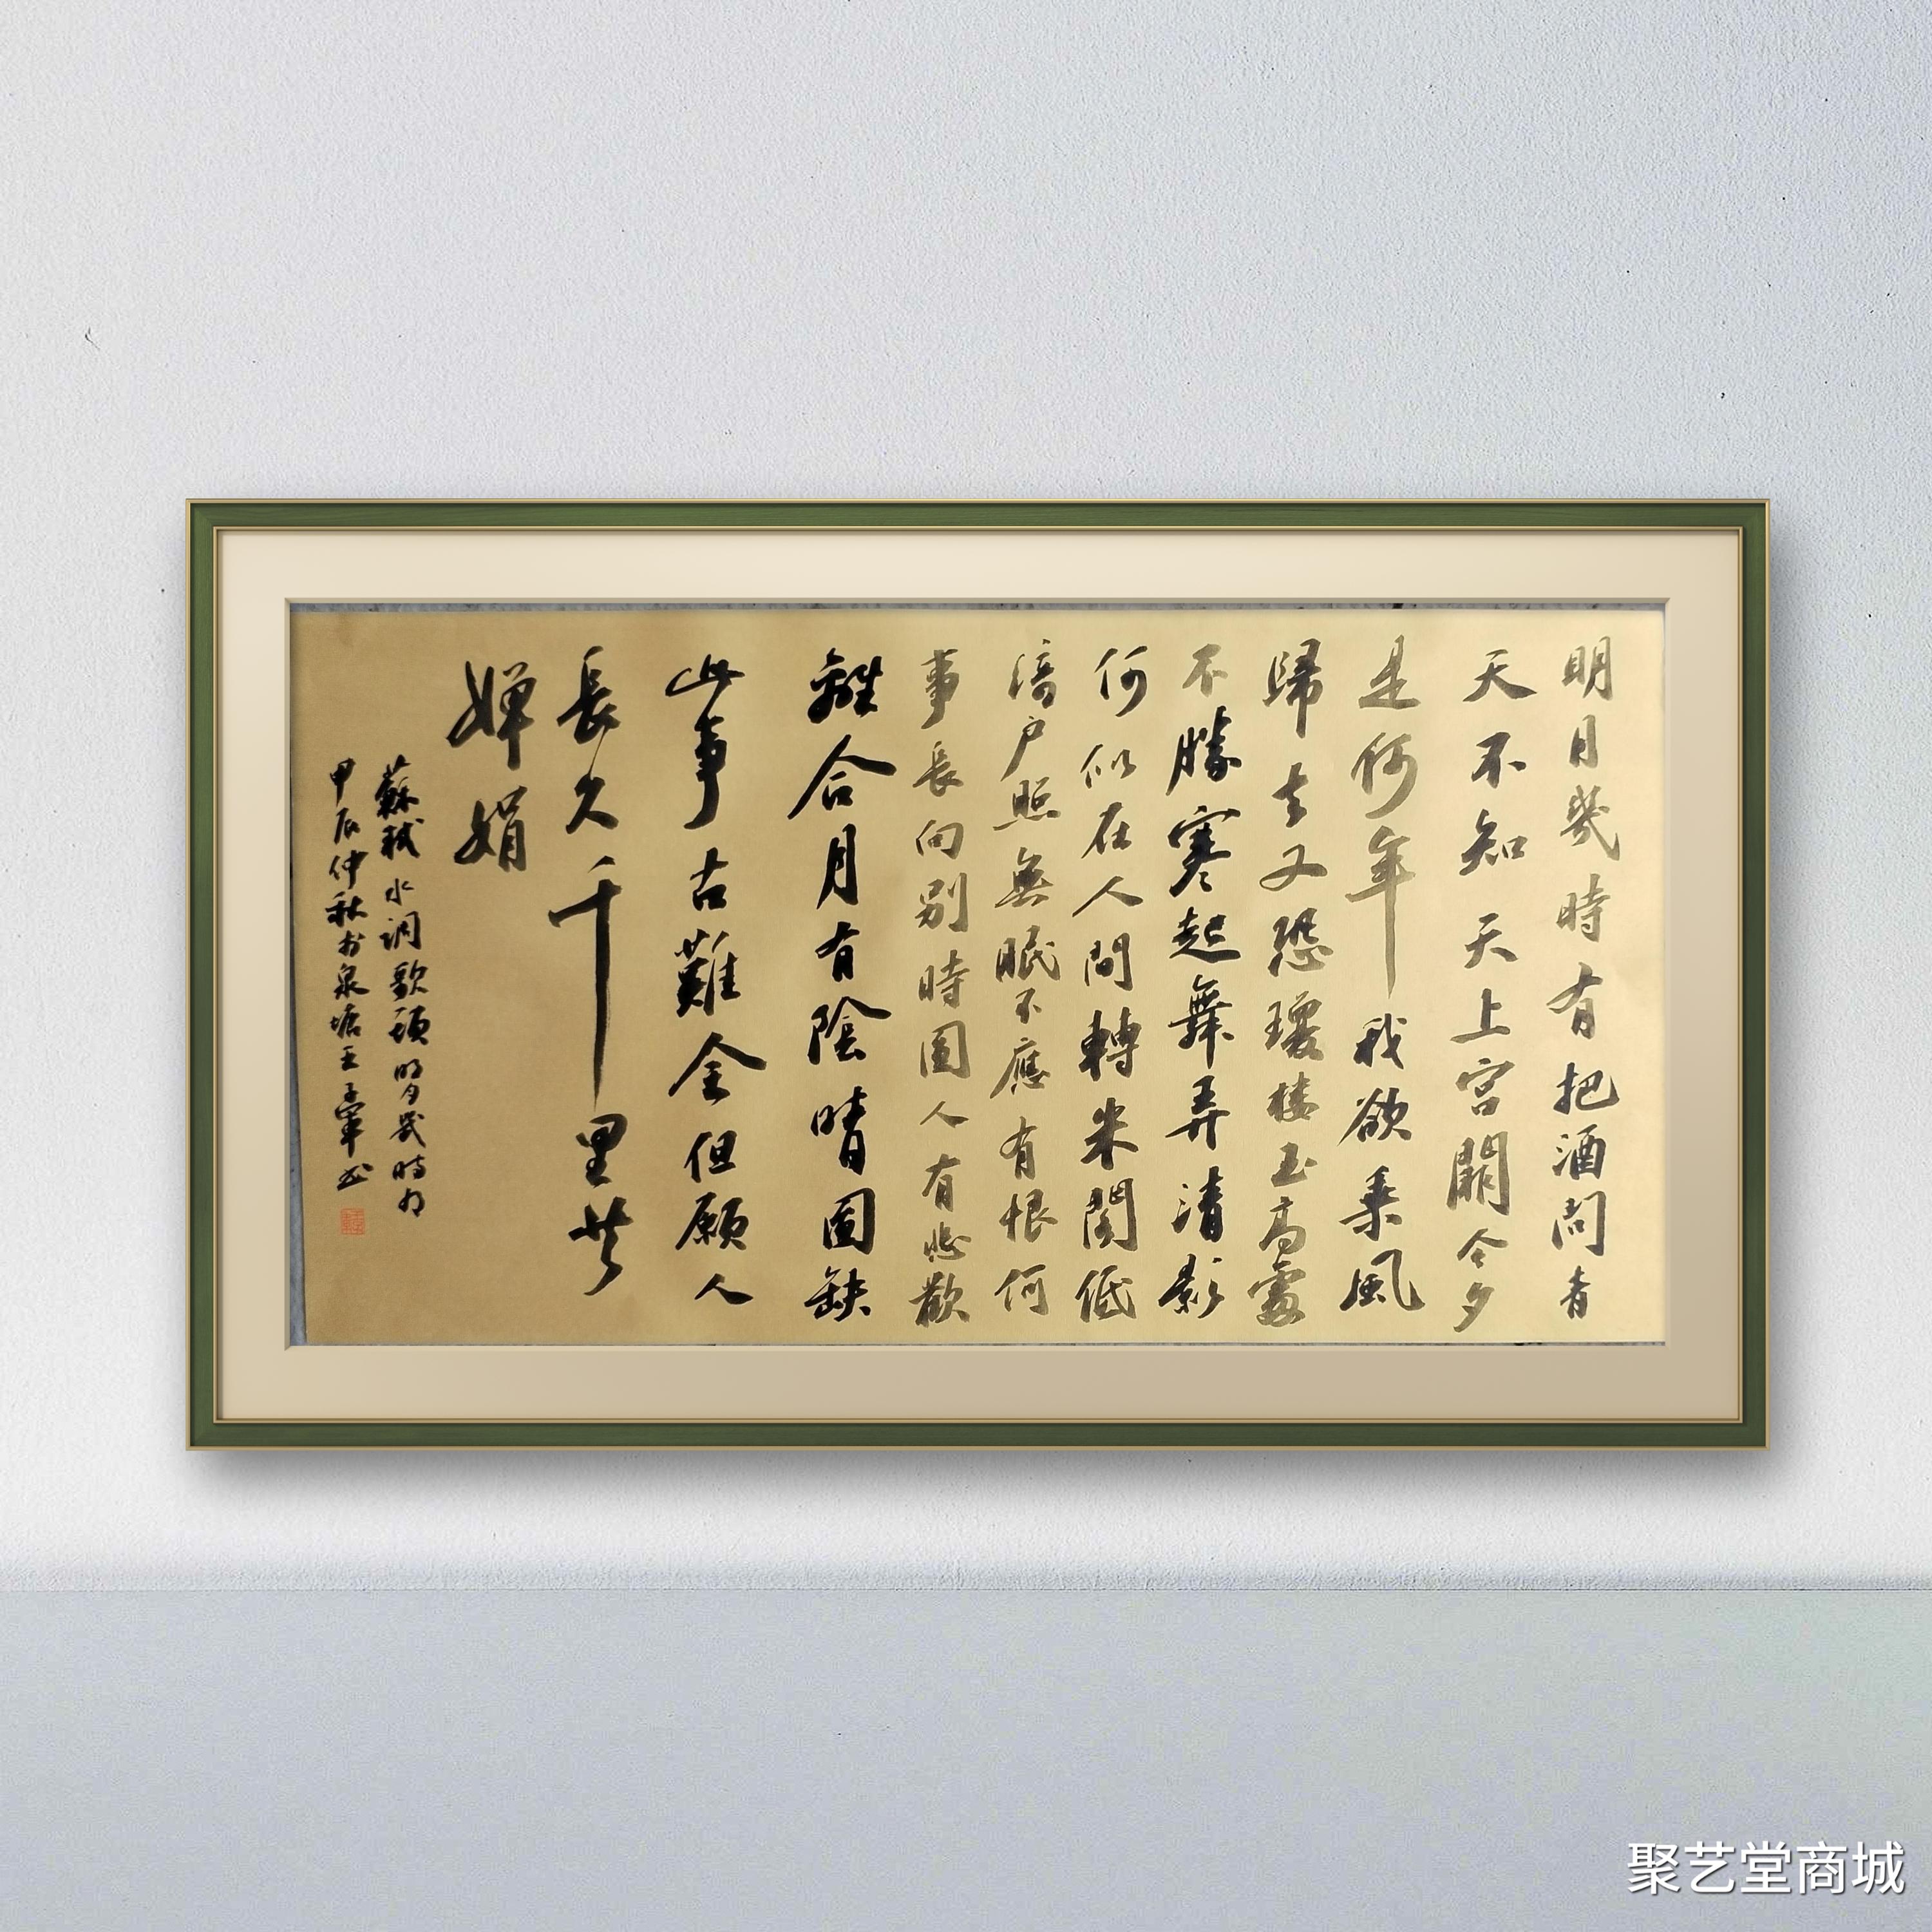 明月幾時有把酒問青
天不知天上宮闕今夕
是何年我欲乘風
歸去又恐瓊楼玉高處
不勝寒起舞弄清影
何似在人間轉朱閣低
綺户照無眠不應有恨何
事長向別時圓人有悲歡
離合月有陰晴圓缺
此事古難全但願人
長久千里共
嬋娟
蘇軾水調歌頭明月幾時有
甲辰仲秋於泉塘王子軍书
聚艺堂商城